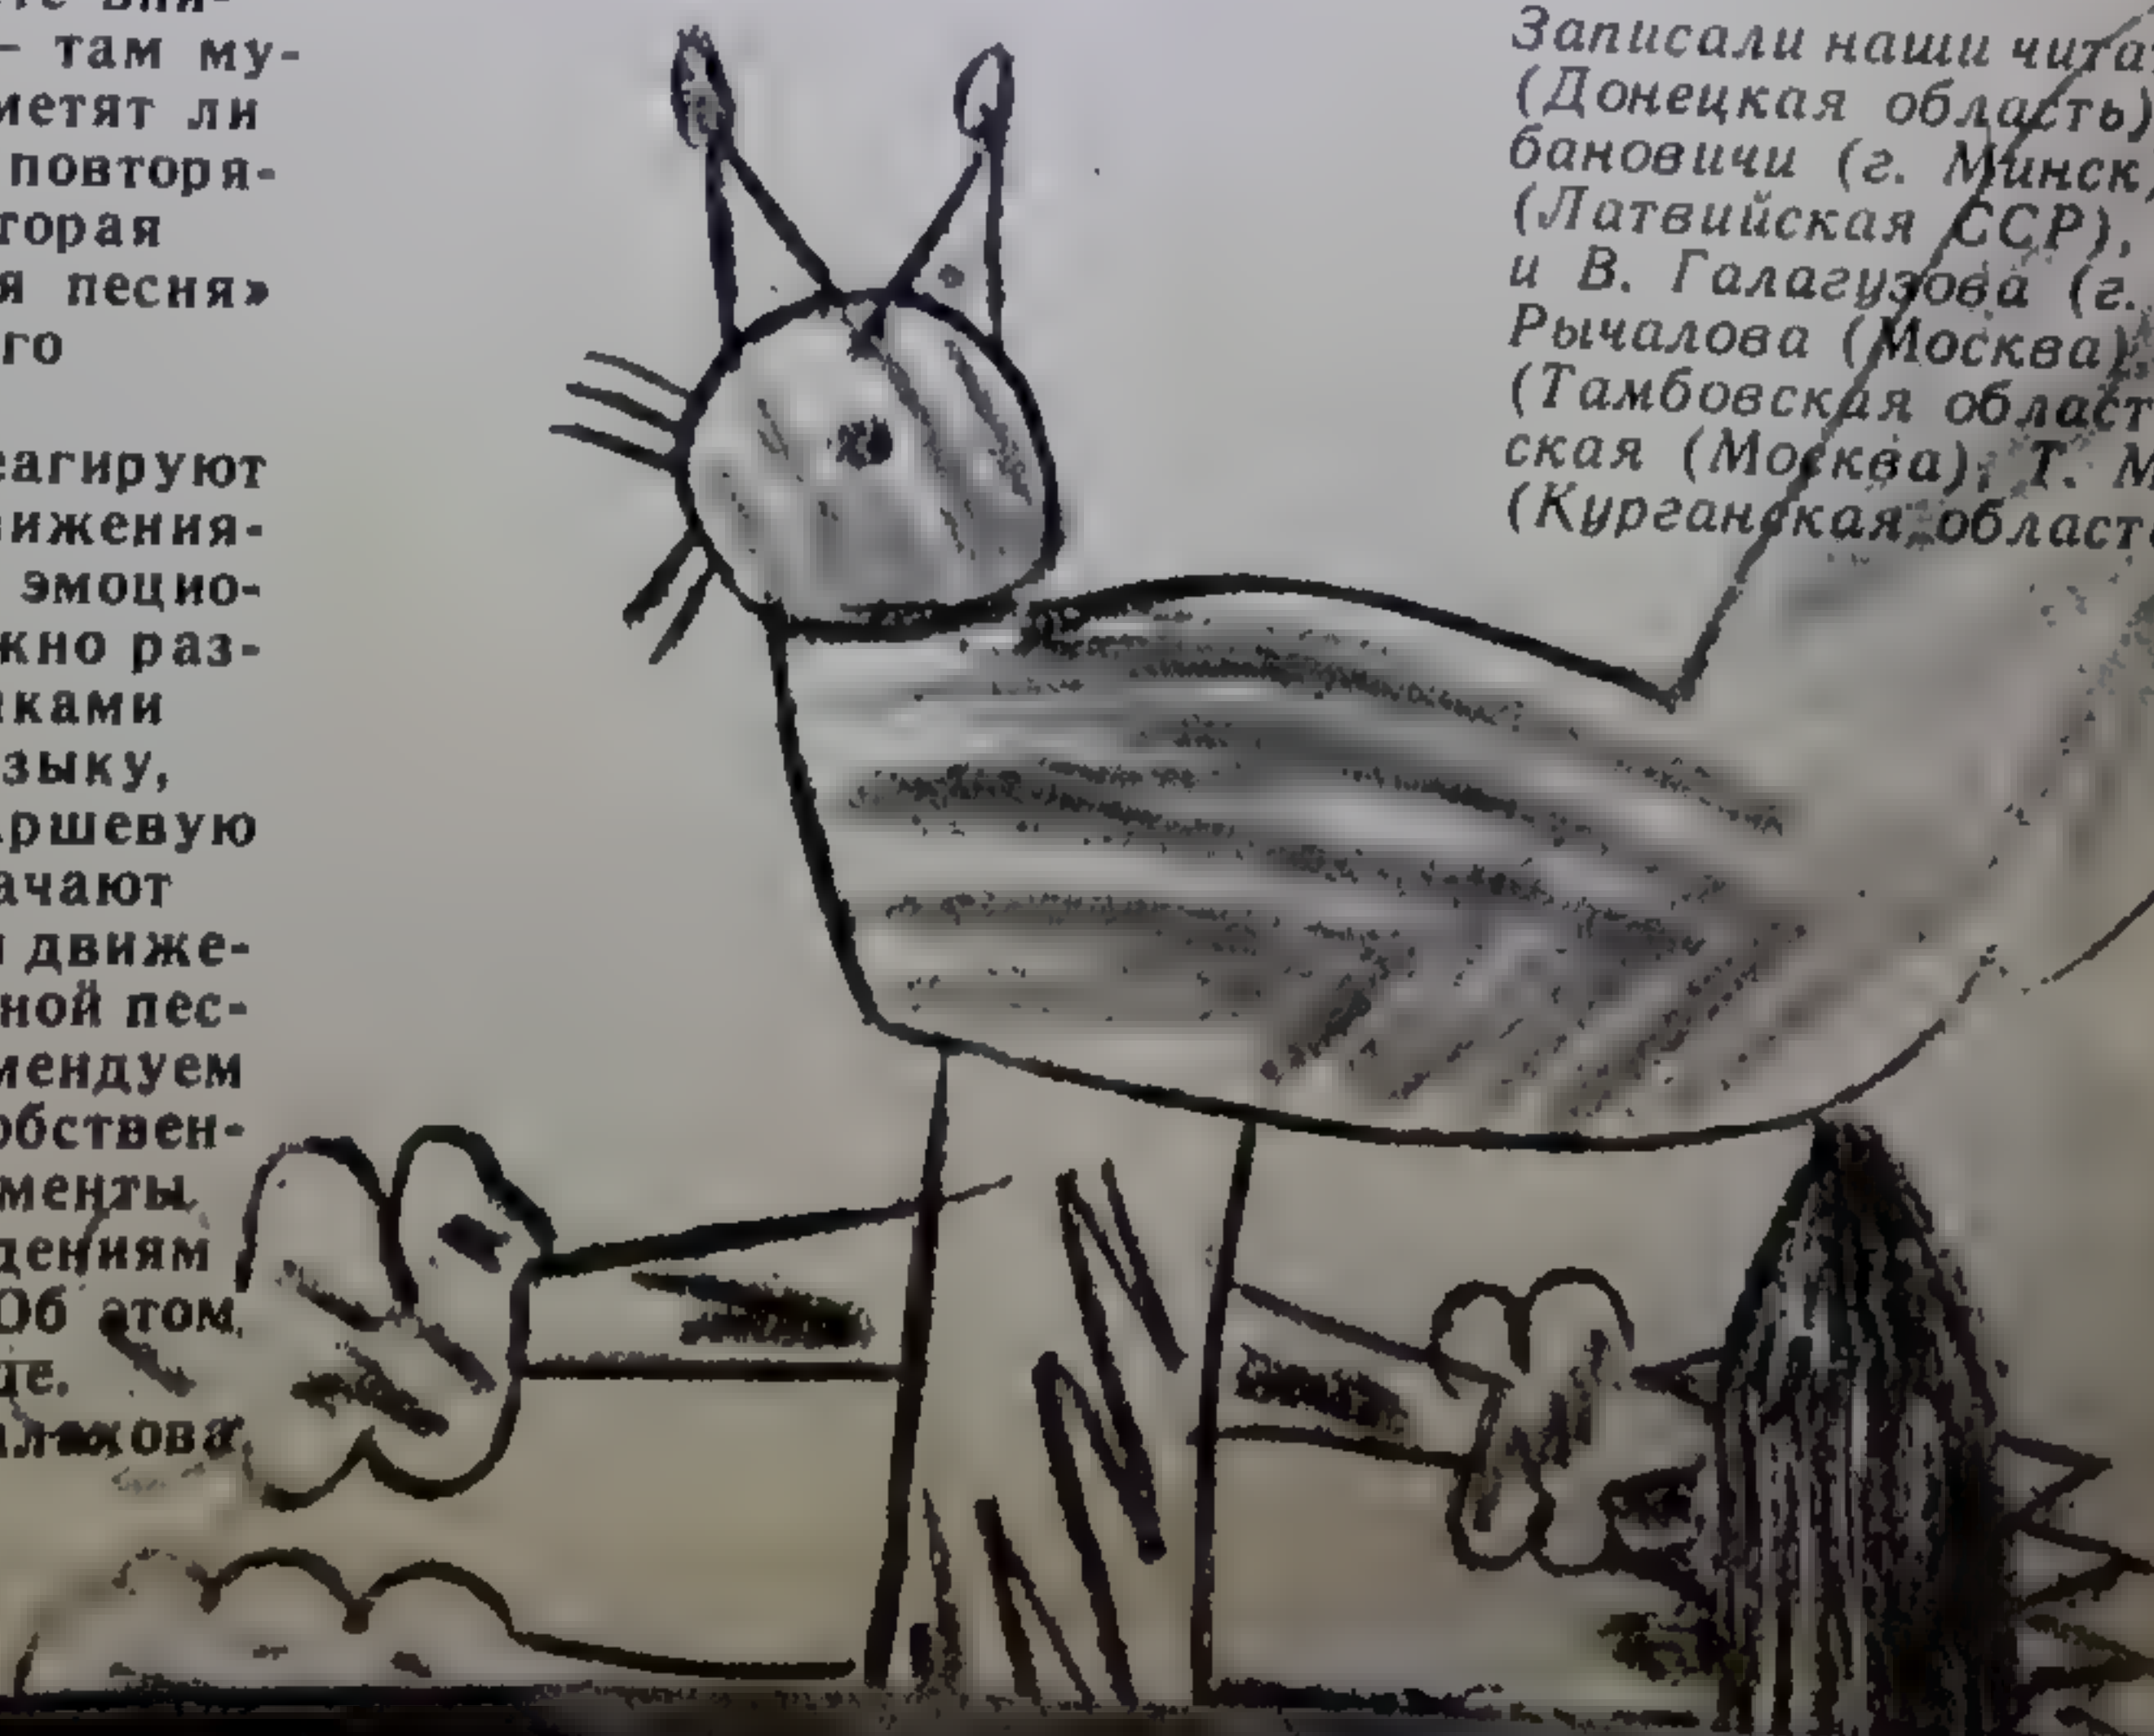 – там му-
метят ли
повторя-
торая
я песня»
го
еагируют
вижения-
эмоцио-
жно раз-
иками
зыку,
аршевую
ачают
и движе-
ной пес-
мендуем
обствен-
менты
дениям
Об этом
де.
алахова
Записали наши чита
(Донецкая область)
бановичи (г. Минск)
(Латвийская ССР),
и В. Галагузова (г.
Рычалова (Москва),
(Тамбовская област
ская (Москва), Т. М
(Курганская област